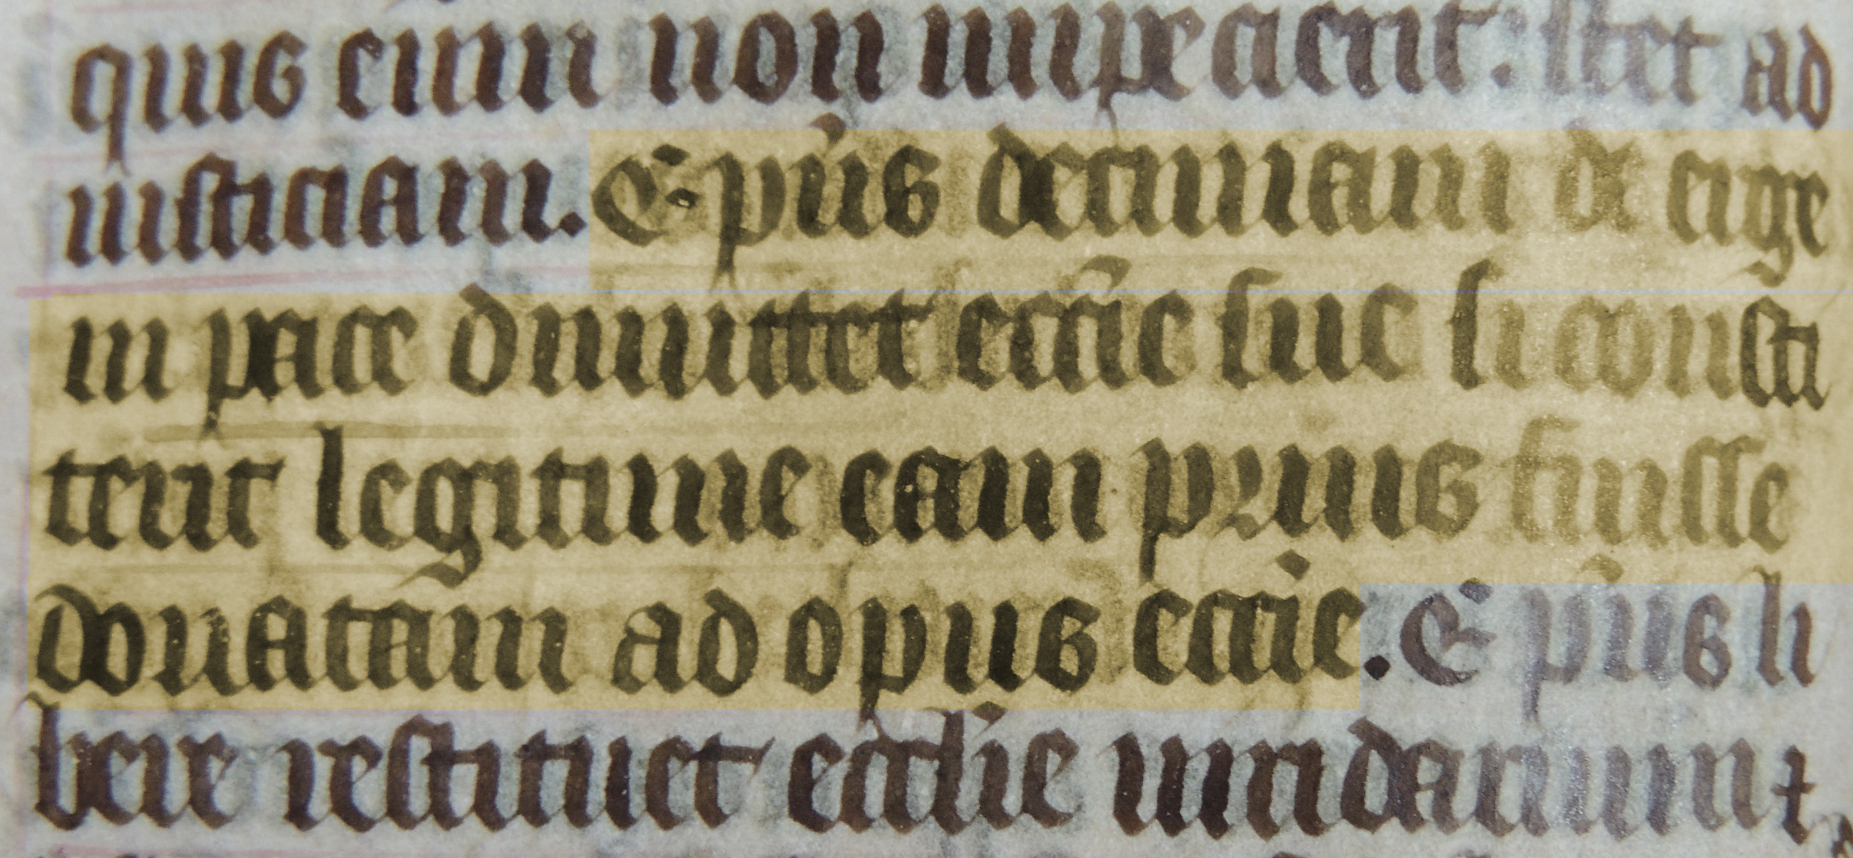 quis eum non impecierit: stet ad
iusticiam. Ep̄us decimam de eige
in pace dimittet eccĺie sue si consti
terit legitime eam prius fuisse
donatam ad opus eccĺie. Ep̄us li
bere restituet ecclie uiridarium ⁊